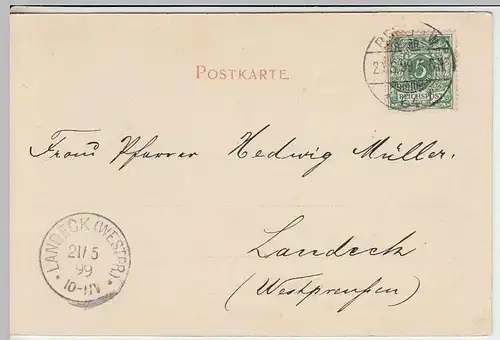 POSTKARTE.
5
REICHSPOST
Frau Pfarrer Hedwig Müller.
Landeck
(Westpreußen)
LANDECK (WESTPR.)
21/5
99
10-11V